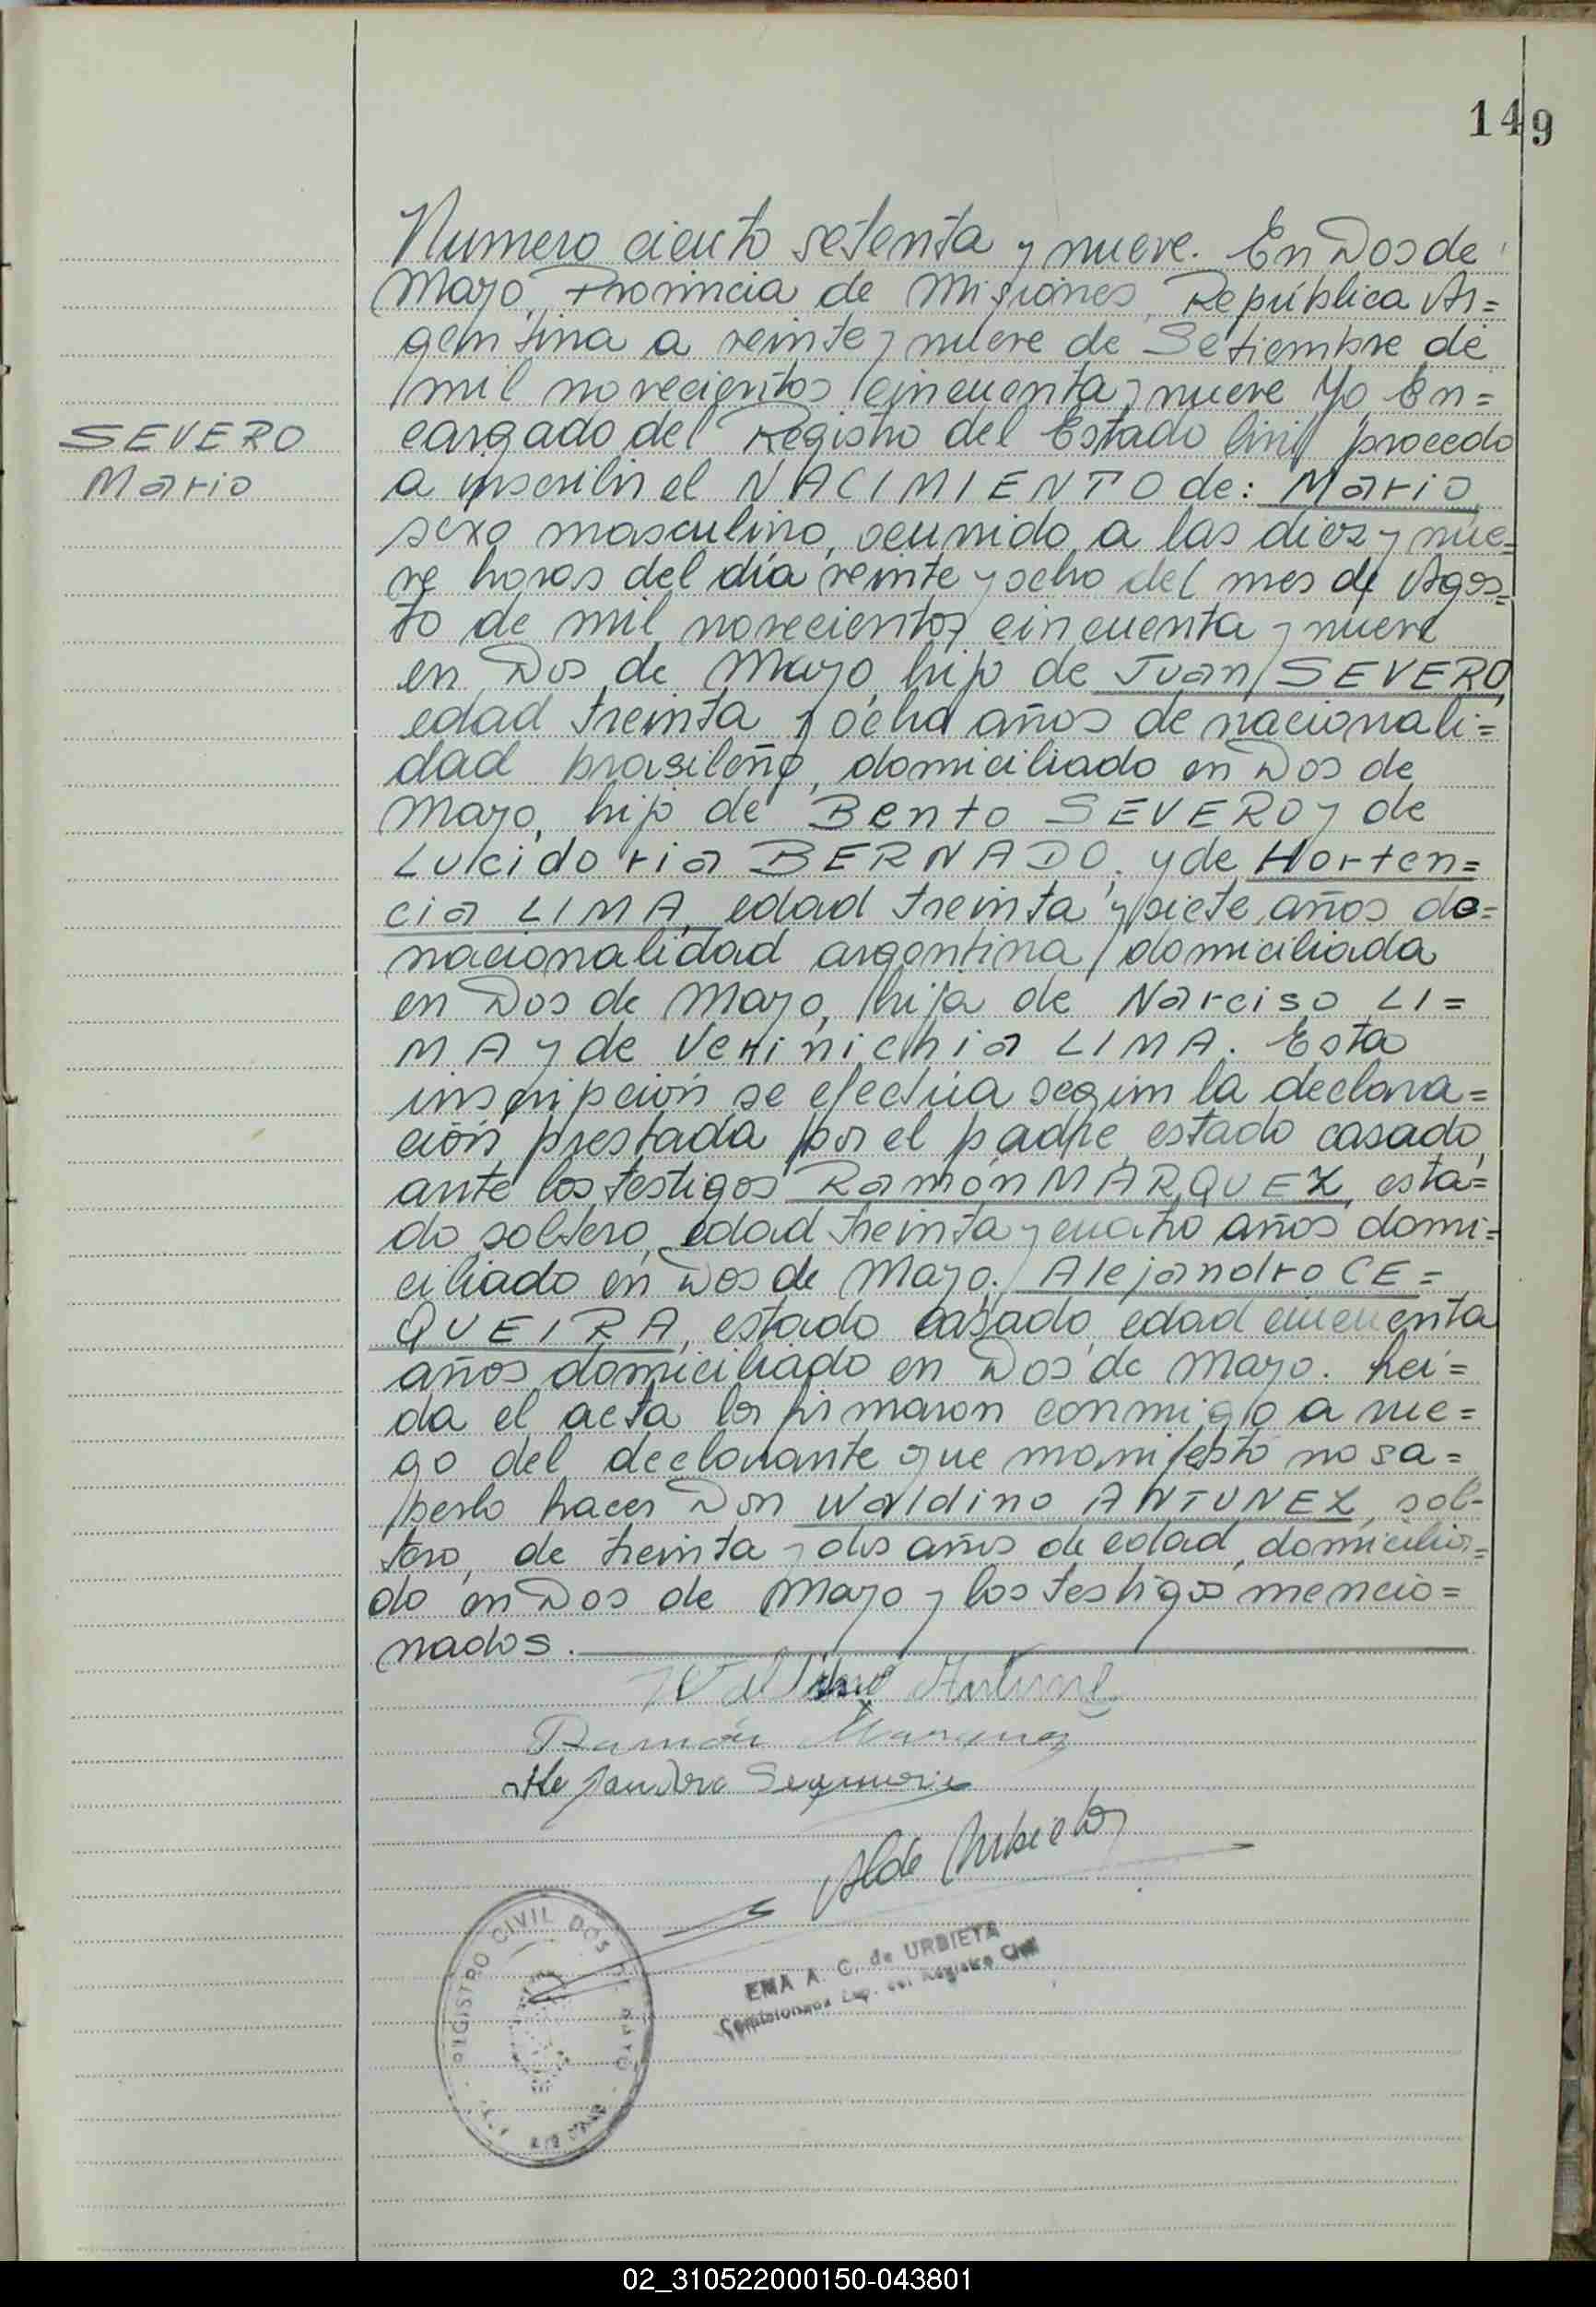 149
Numero ciento setenta y nueve. En Dos de
Mayo, Provincia de Misiones, República Ar=
gentina a veinte y nueve de Setiembre de
mil novecientos cincuenta y nueve Yo, En=
cargado del Registro del Estado Civil procedo
SEVERO
Mario
a inscribir el NACIMIENTO de: Mario,
sexo masculino, ocurrido a las diez y nue=
ve horas del día veinte y ocho del mes de Agos=
to de mil novecientos cincuenta y nueve
en Dos de Mayo, hijo de Juan SEVERO,
edad treinta y ocho años de nacionali=
dad brasileño, domiciliado en Dos de
Mayo, hijo de Bento SEVERO y de
Lucidoria BERNADO, y de Horten=
cia LIMA, edad treinta y siete años de=
nacionalidad argentina, domiciliada
en Dos de Mayo, hija de Narciso LI=
MA y de Verinichia LIMA. Esta
inscripción se efectúa según la declara=
ción prestada por el padre, estado casado,
ante los testigos Ramón MARQUEZ, esta=
do soltero, edad treinta y cuatro años domi=
ciliado en Dos de Mayo. Alejandro CE=
QUEIRA, estado casado, edad cincuenta
años domiciliado en Dos de Mayo. Leí=
da el acta la firmaron conmigo a rue=
go del declarante que manifestó no sa=
berlo hacer Don Waldino ANTUNEZ, sol-
tero, de treinta y dos años de edad, domicilia=
do en Dos de Mayo y los testigos mencio=
nados.
Antune
Ramón Marquez
Alejandro Sequeira
A de Urbieta
REGISTRO CIVIL DOS DE MAYO
EMA A. C. de URBIETA
del Registro Civil
02_310522000150-043801